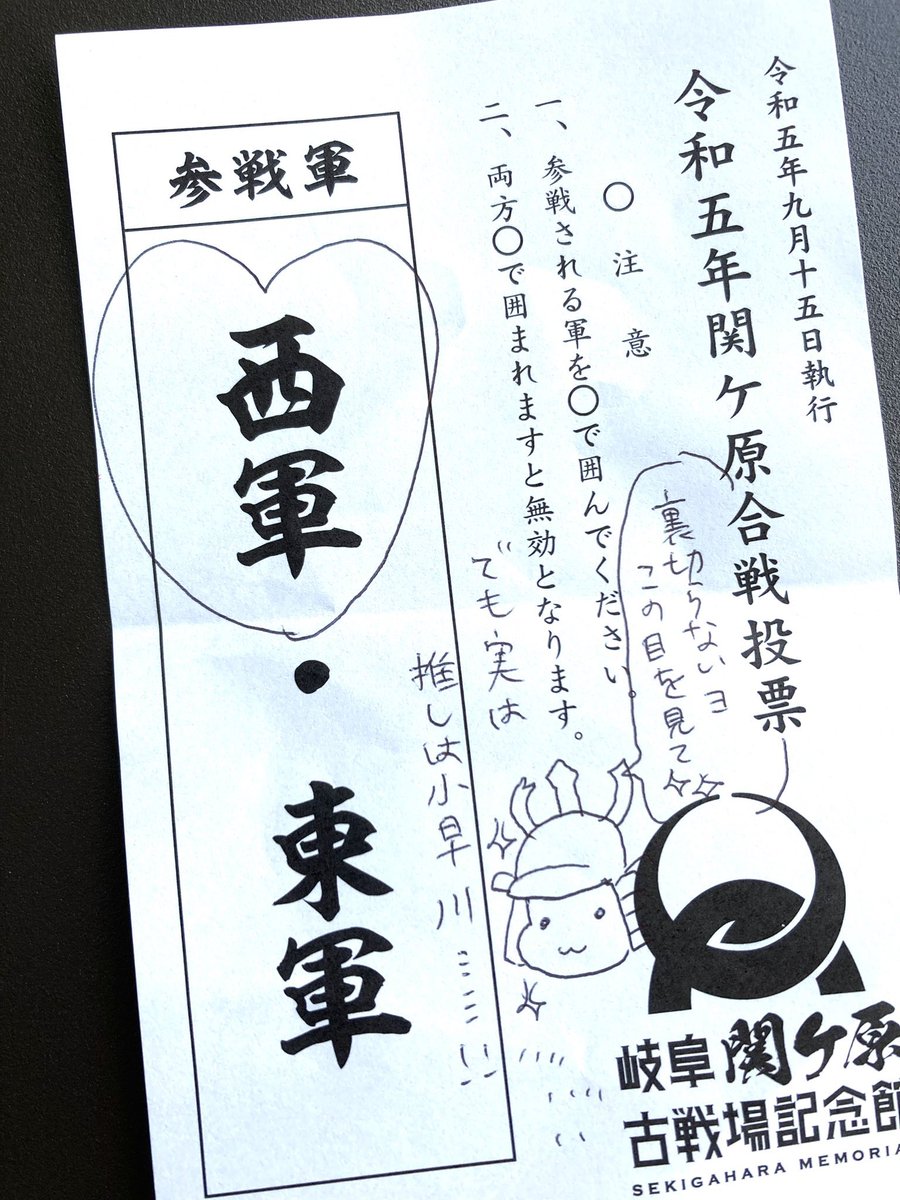 令和五年九月十五日執行
令和五年関ケ原合戦投票
〇注意
一、参戦される軍を〇で囲んでください。
二、両方〇で囲まれますと無効となります。
裏切らないヨ
この目を見て
でも実は
推しは小早川
参戦軍
西軍・東軍
岐阜関ケ原
古戦場記念館
SEKIGAHARA MEMORIA